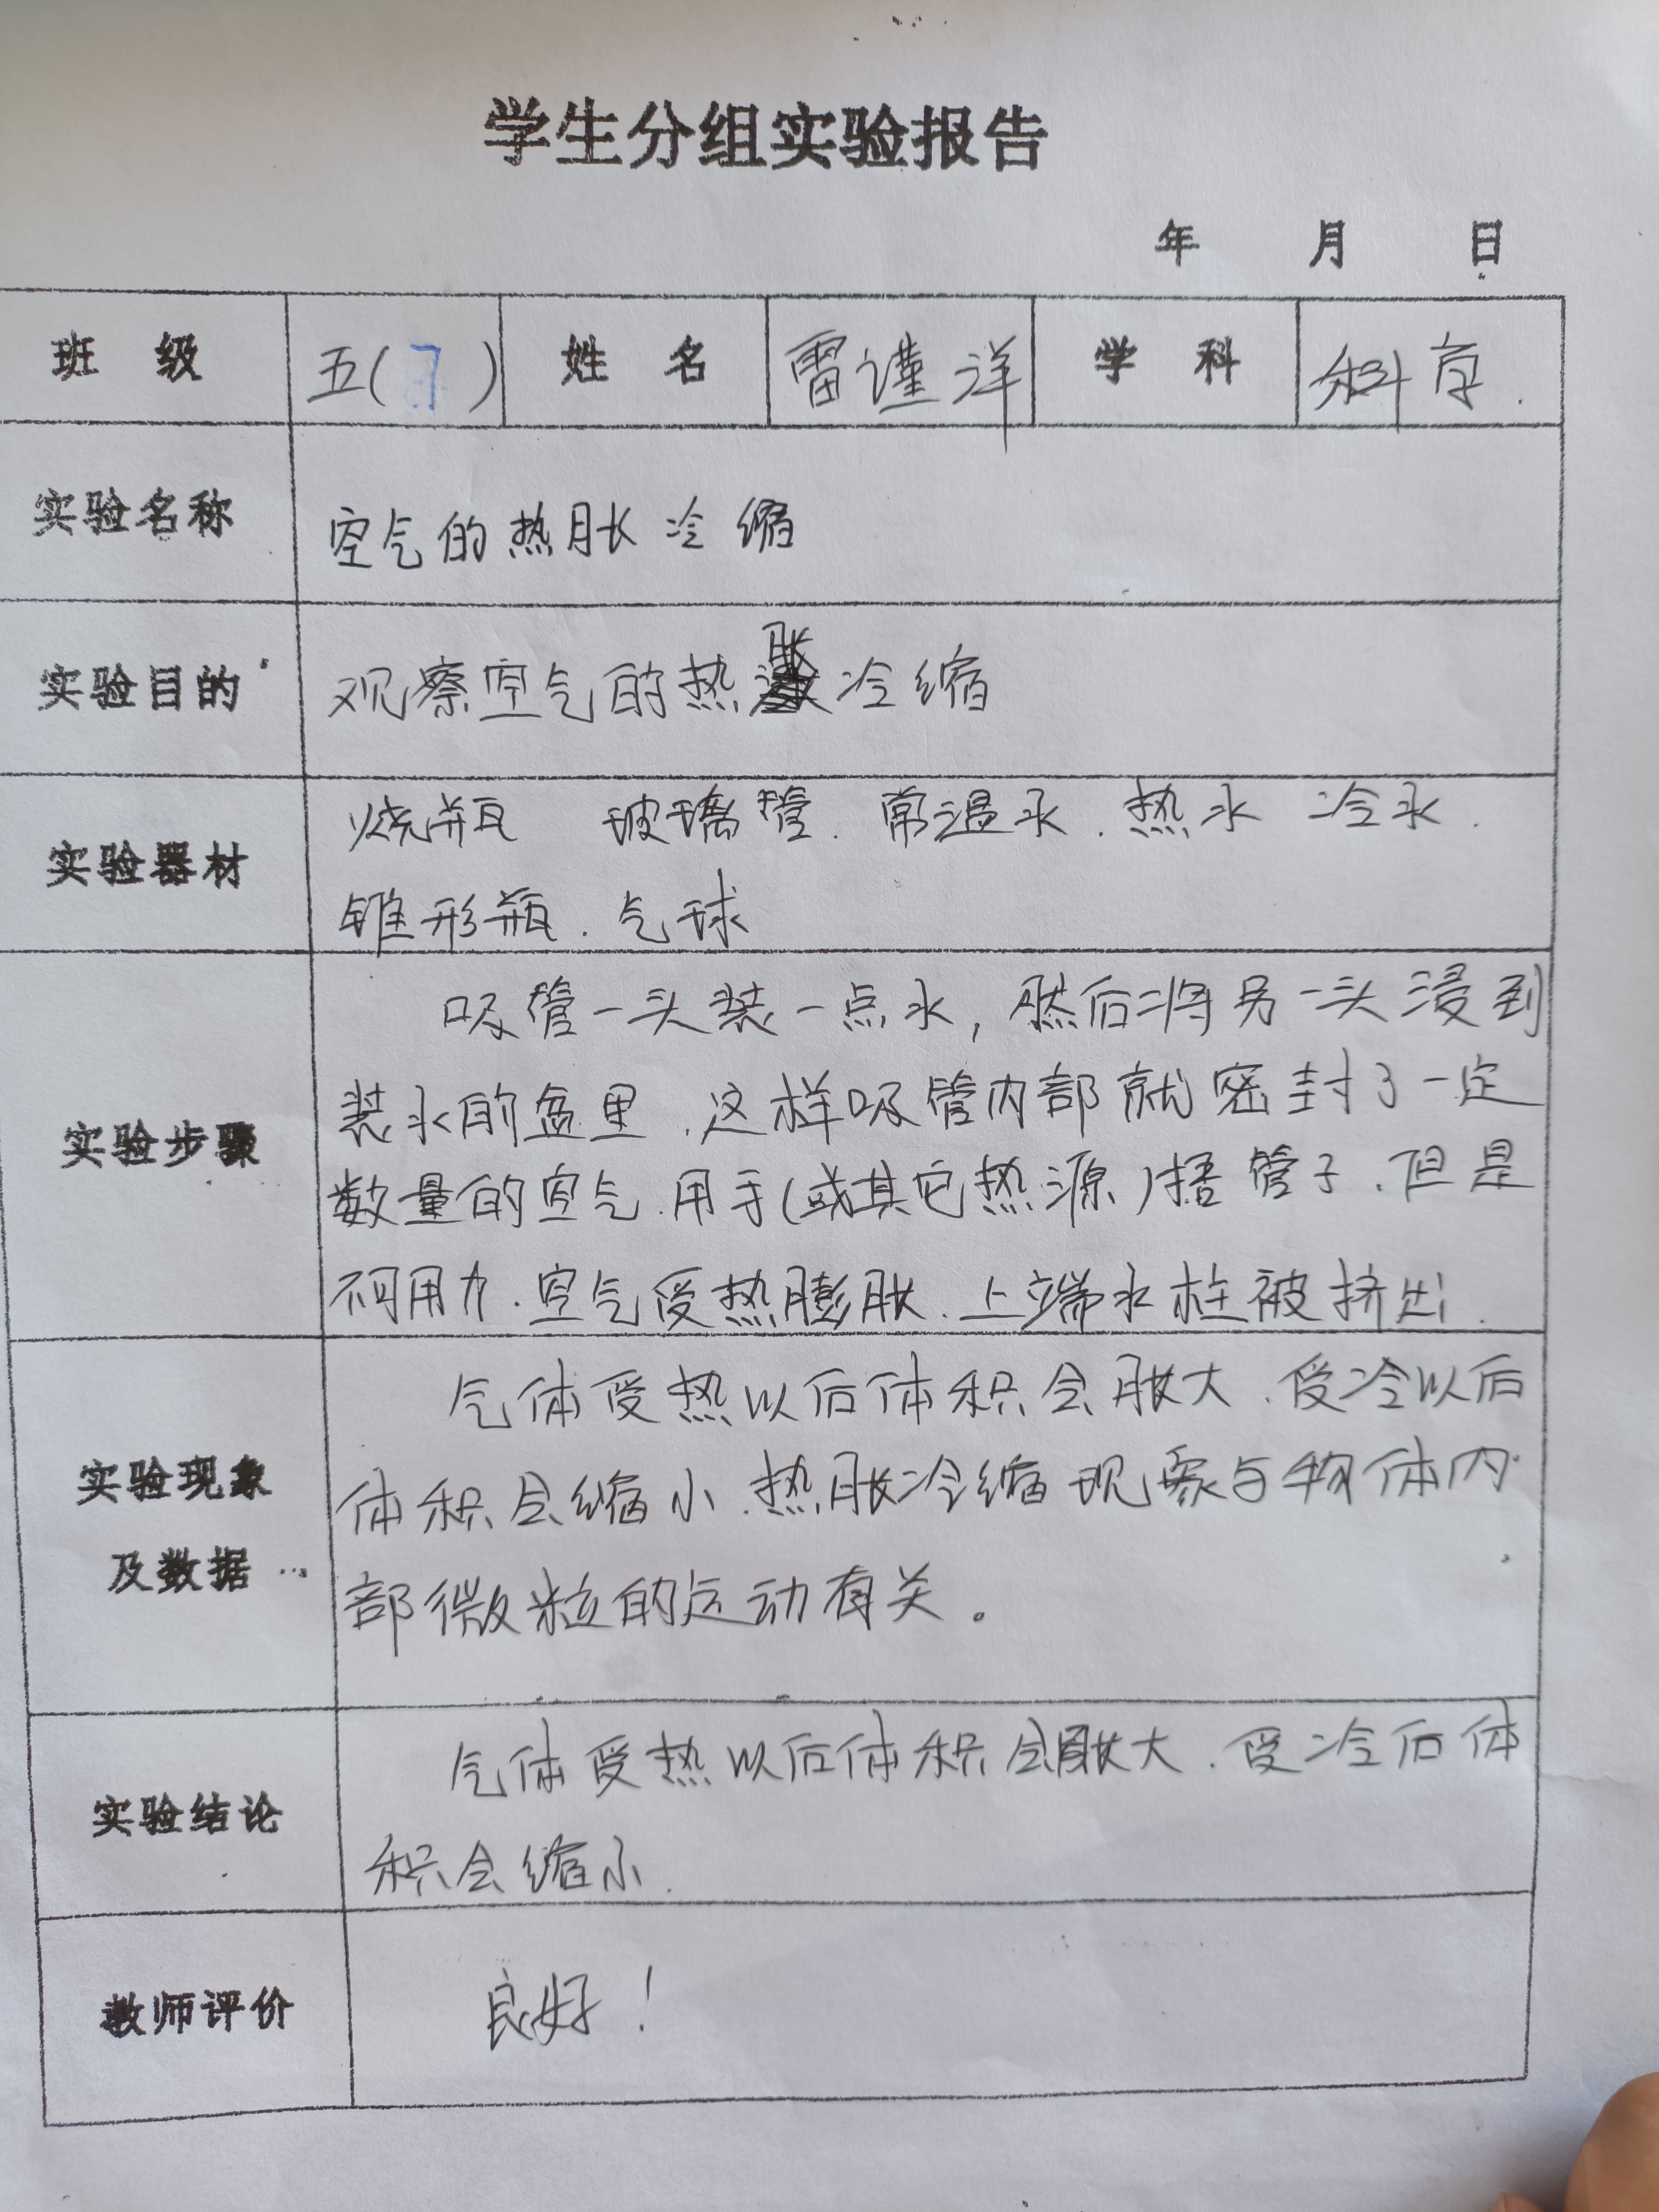 学生分组实验报告
年 月 日
班 级 五(7) 姓 名 雷谨洋 学 科 科学.
实验名称 空气的热胀冷缩
实验目的 观察空气的热胀冷缩
实验器材 烧瓶 玻璃管. 常温水. 热水 冷水.
锥形瓶. 气球
实验步骤 吸管一头装一点水, 然后将另一头浸到
装水的盆里.这样吸管内部就密封了一定
数量的空气.用手(或其它热源)捂管子.但是
不可用力.空气受热膨胀.上端水柱被挤出.
实验现象
及数据
气体受热以后体积会胀大.受冷以后
体积会缩小.热胀冷缩现象与物体内
部微粒的运动有关。
实验结论 气体受热以后体积会胀大.受冷后体
积会缩小.
教师评价 良好!